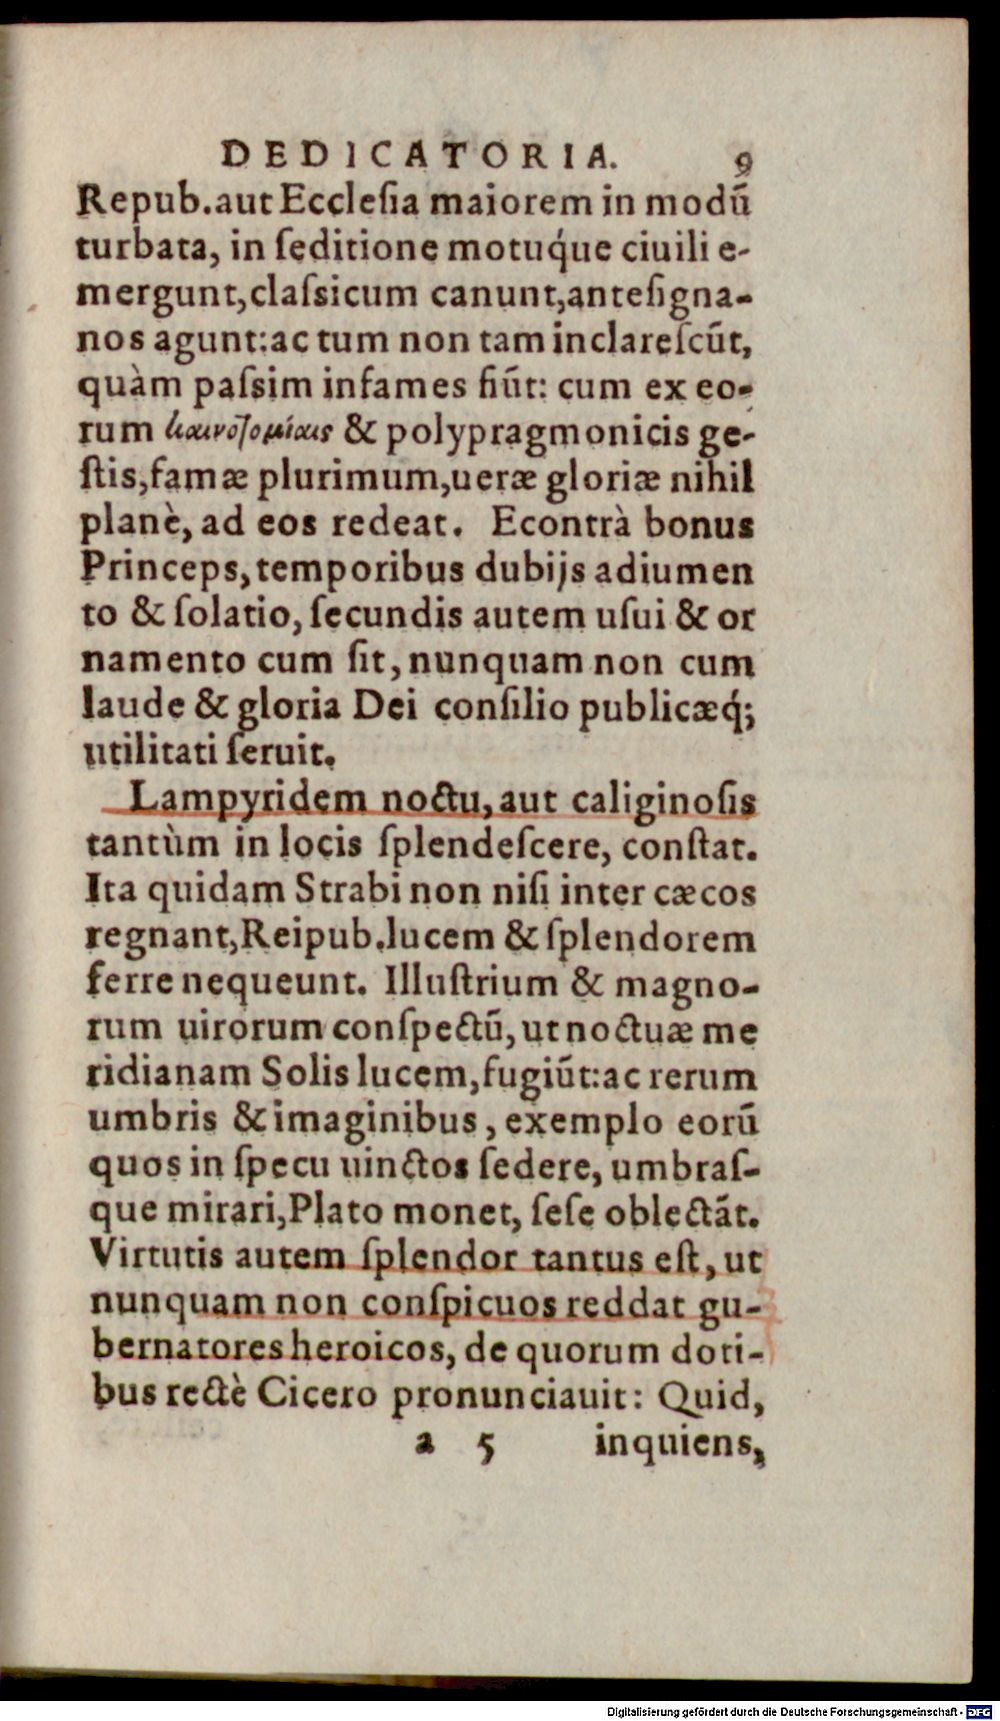 DEDICATORIA. 9
Repub.aut Ecclesia maiorem in modū
turbata, in ſeditione motuq́ue ciuili e-
mergunt,claſsicum canunt,anteſigna-
nos agunt:ac tum non tam inclareſcūt,
quàm paſsim infames fiūt: cum ex eo-
rum καινοτομίαις & polypragmonicis ge-
ſtis,famæ plurimum,ueræ gloriæ nihil
planè, ad eos redeat. Econtrà bonus
Princeps,temporibus dubijs adiumen
to & ſolatio, ſecundis autem uſui & or
namento cum ſit, nunquam non cum
laude & gloria Dei conſilio publicæq́;
utilitati ſeruit.
Lampyridem noctu,aut caliginoſis
tantùm in locis ſplendeſcere, conſtat.
Ita quidam Strabi non niſi inter cæcos
regnant,Reipub.lucem & ſplendorem
ferre nequeunt. Illuſtrium & magno-
rum uirorum conſpectū, ut noctuæ me
ridianam Solis lucem,fugiūt:ac rerum
umbris & imaginibus, exemplo eorū
quos in ſpecu uinctos ſedere, umbraſ-
que mirari,Plato monet, ſeſe oblectāt.
Virtutis autem ſplendor tantus eſt, ut
nunquam non conſpicuos reddat gu-
bernatores heroicos, de quorum doti-
bus rectè Cicero pronunciauit: Quid,
a 5 inquiens,
Digitalisierung gefördert durch die Deutsche Forschungsgemeinschaft - DFG